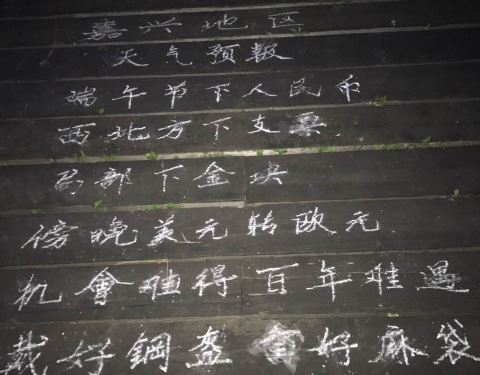 嘉兴地区
天气预報
端午节下人民币
西北方下支票
局部下金块
傍晚美元转欧元
机會难得百年难遇
戴好鋼盔 好麻袋